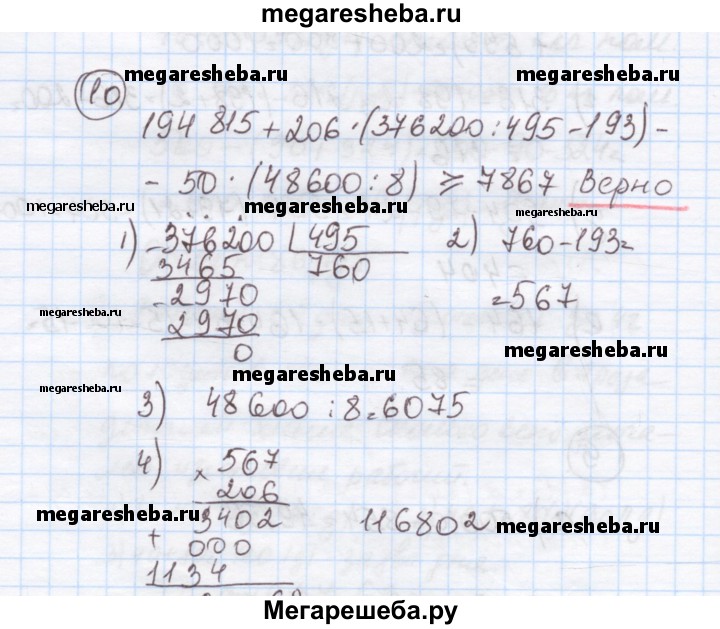 megaresheba.ru
10
megaresheba.ru megaresheba.ru
194 815 + 206 · (376200 : 495 - 193) -
- 50 · (48600 : 8) ⩾ 7867 Верно
megaresheba.ru megaresheba.ru megaresheba.ru
1) - 376200 | 495 2) 760 - 193 =
3465 760 = 567
- 2970
2970
0
megaresheba.ru megaresheba.ru
megaresheba.ru megaresheba.ru
3) 48600 : 8 = 6075
4) × 567
206
megaresheba.ru 3402 116802 megaresheba.ru
+ 000
1134
Мегарешеба.ру